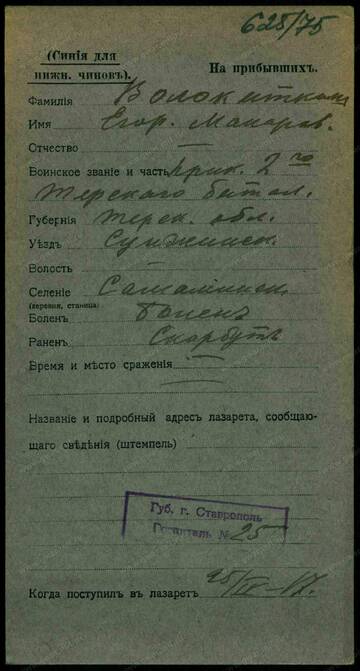 625/75
(Синія для
нижн. чиновъ).
На прибывшихъ.
Фамилія Волокиткинъ
Имя Егор. Макаров.
Отчество —
Воинское званіе и часть Прик. 2го
Терского батал.
Губернія Терск. обл.
Уѣздъ Сунженск.
Волость —
Селеніе
(деревня, станица)
Боленъ Боленъ
Раненъ Скорбутъ
Время и мѣсто сраженія —
Названіе и подробный адресъ лазарета, сообщаю-
щаго свѣдѣнія (штемпель)
Губ. г. Ставрополь
Госпиталь № 25
Когда поступилъ въ лазаретъ 25/IV—17.